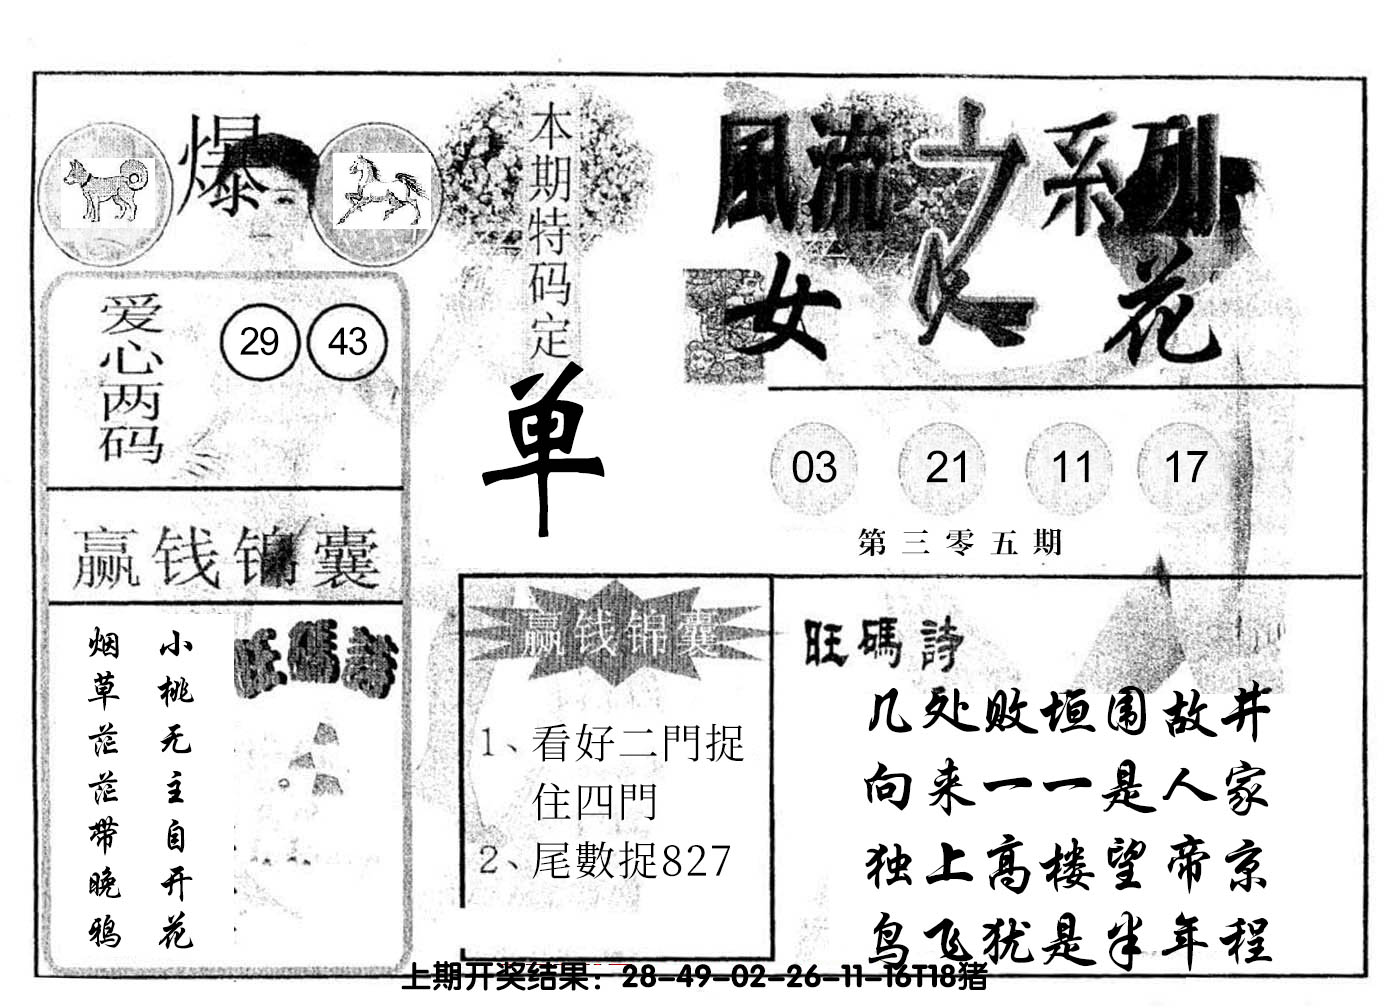 爆
本期特码定
单
風流之系列
女人花
爱心两码
29 43
03 21 11 17
第三零五期
赢钱锦囊
小桃无主自开花
烟草茫茫带晚鸦
旺碼詩
赢钱锦囊
1、看好二門捉
住四門
2、尾數捉827
旺碼詩
几处败垣围故井
向来一一是人家
独上高楼望帝京
鸟飞犹是半年程
上期开奖结果：28-49-02-26-11-16T18猪